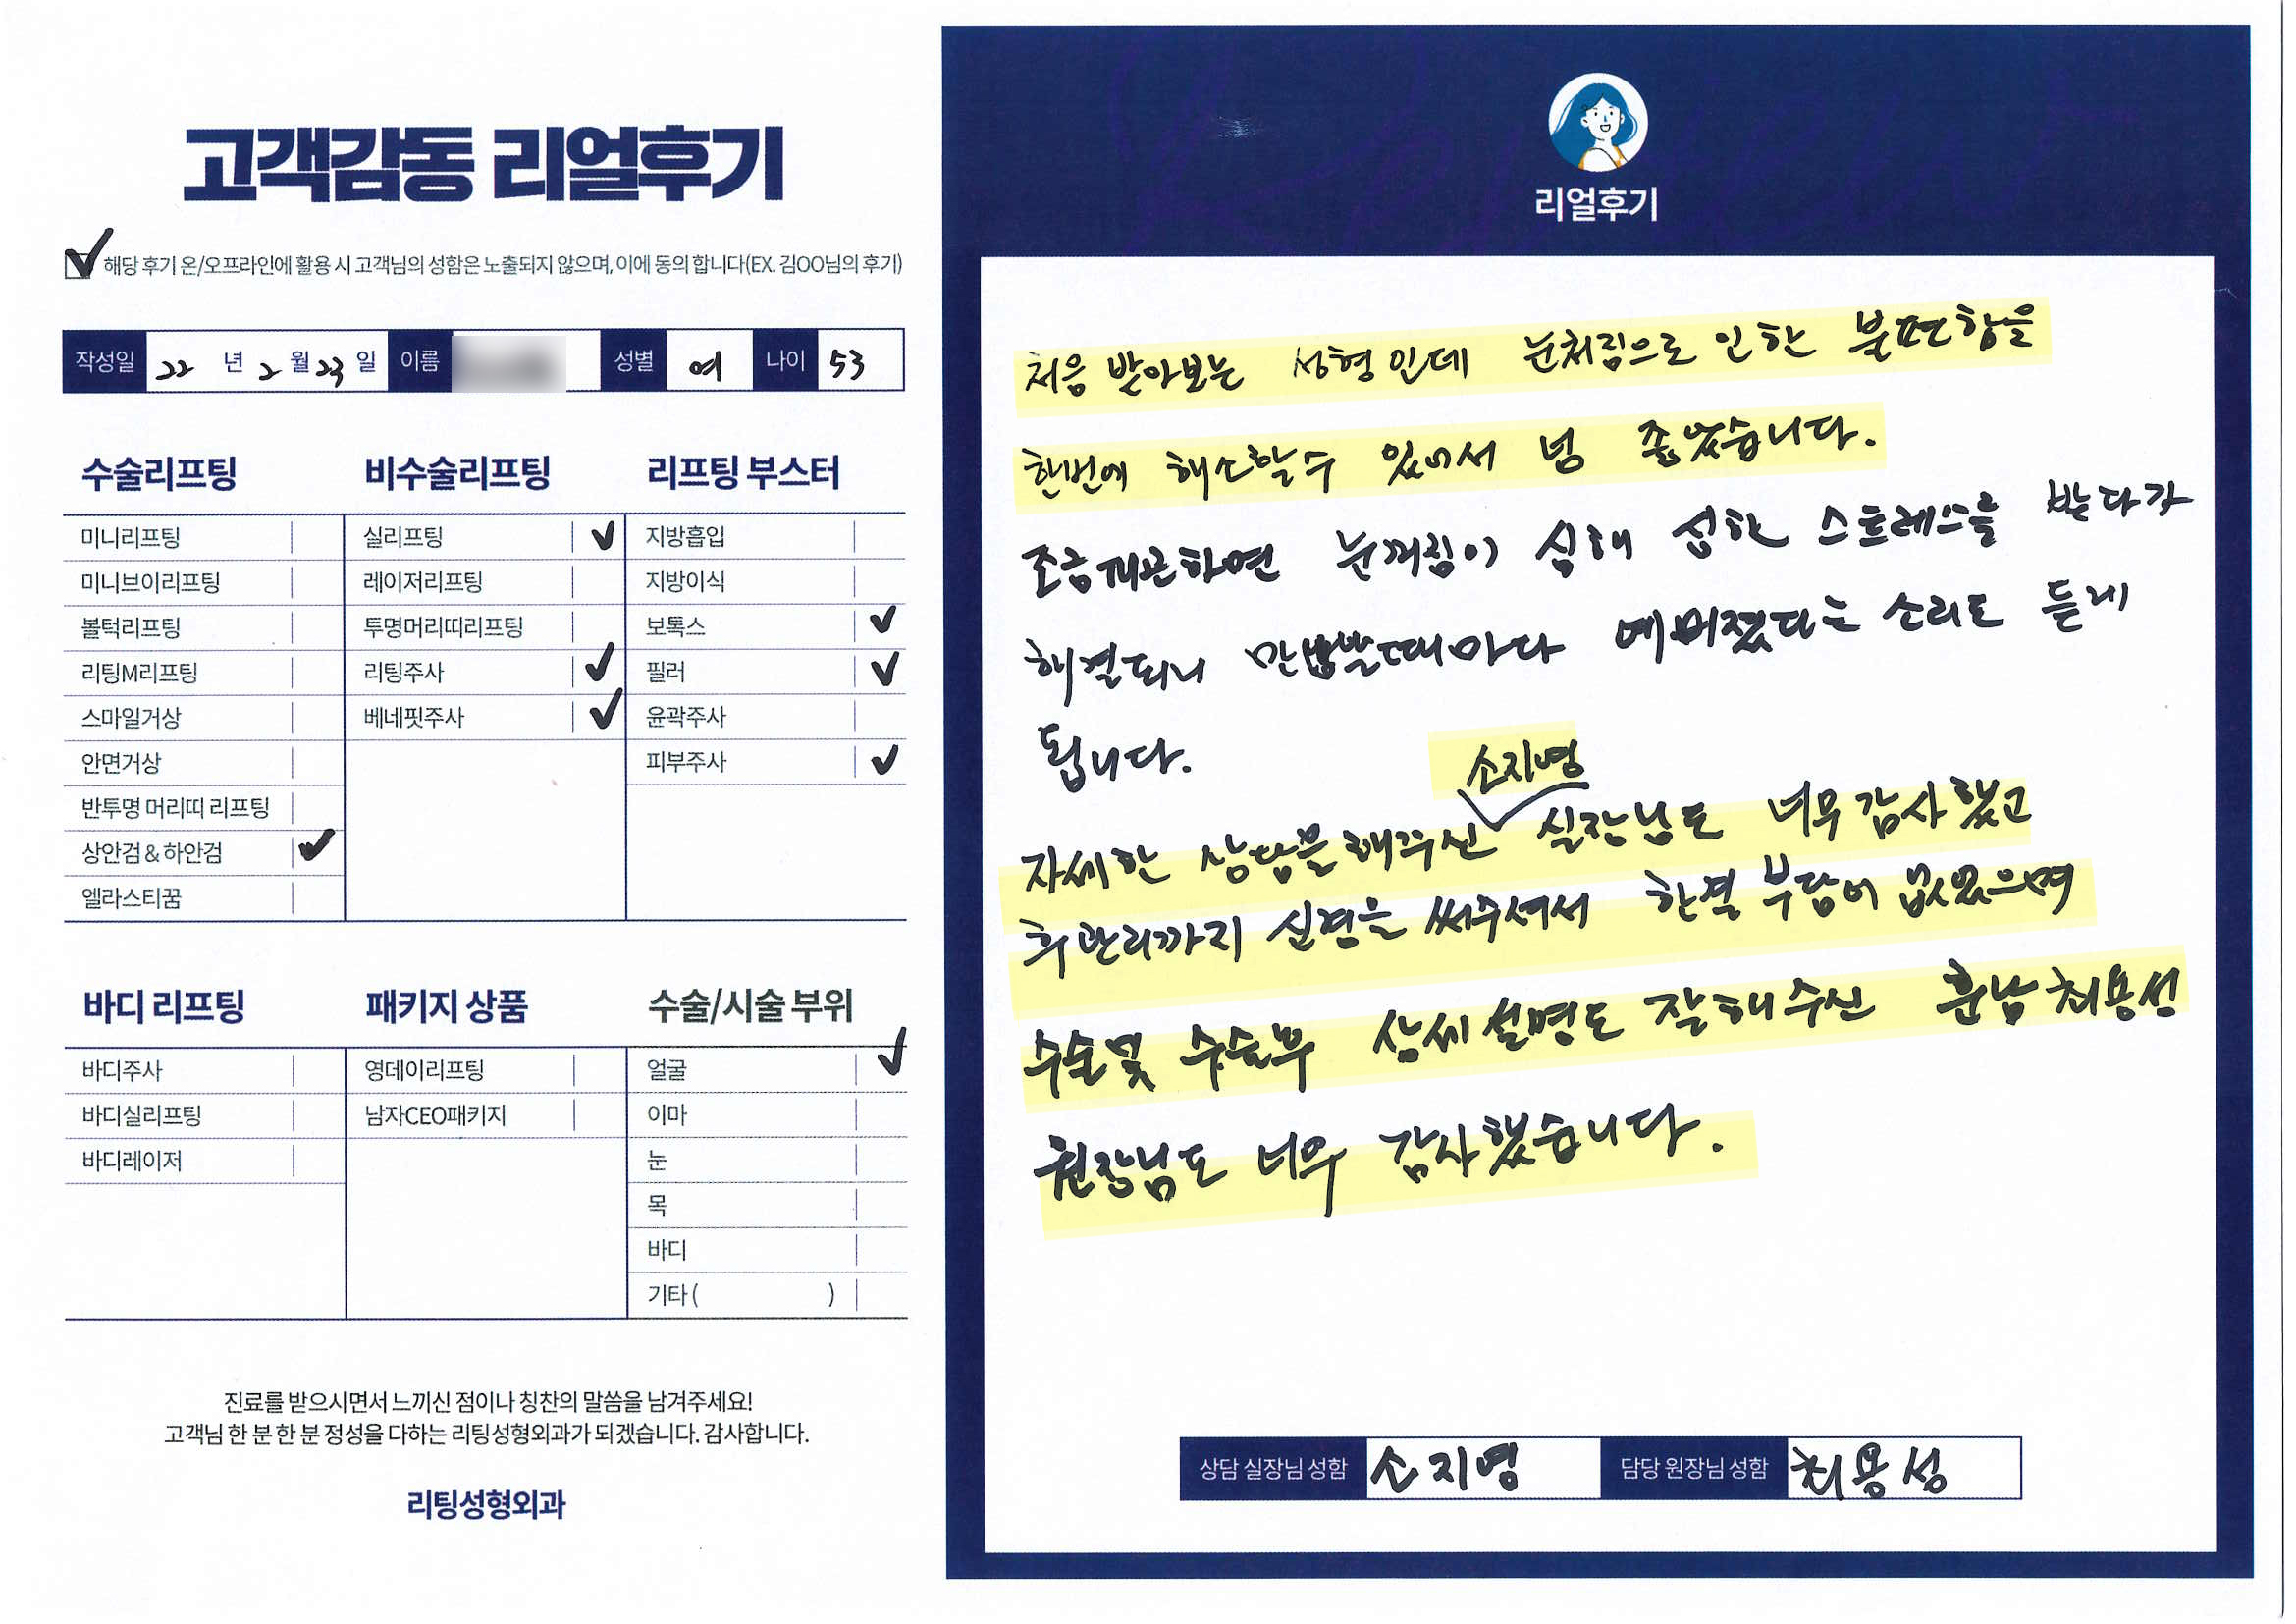 고객감동 리얼후기
해당 후기 온/오프라인에 활용 시 고객님의 성함은 노출되지 않으며, 이에 동의 합니다(EX. 김OO님의 후기)
작성일 22 년 2 월 23 일 이름 성별 여 나이 53
수술리프팅
미니리프팅
미니브이리프팅
볼턱리프팅
리팅M리프팅
스마일거상
안면거상
반투명 머리띠 리프팅
상안검 & 하안검
엘라스티꿈
비수술리프팅
실리프팅
레이저리프팅
투명머리띠리프팅
리팅주사
베네핏주사
리프팅 부스터
지방흡입
지방이식
보톡스
필러
윤곽주사
피부주사
바디 리프팅
바디주사
바디실리프팅
바디레이저
패키지 상품
영데이리프팅
남자CEO패키지
수술/시술 부위
얼굴
이마
눈
목
바디
기타 ( )
진료를 받으시면서 느끼신 점이나 칭찬의 말씀을 남겨주세요!
고객님 한 분 한 분 정성을 다하는 리팅성형외과가 되겠습니다. 감사합니다.
리팅성형외과
리얼후기
처음 받아보는 성형인데 눈처짐으로 인한 불편함을
한번에 해소할수 있어서 넘 좋았습니다.
조금 피곤하면 눈꺼짐이 심해 심한 스트레스를 받다가
해결되니 만날때마다 예뻐졌다는 소리도 듣게
됩니다.
자세한 상담을 해주신 소지명 실장님도 너무 감사했고
후관리까지 신경을 써주셔서 한결 부담이 없었으며
수술및 수술부 상세설명도 잘해주신 훈남 최용성
원장님도 너무 감사했습니다.
상담 실장님 성함 소지명 담당 원장님 성함 최용성